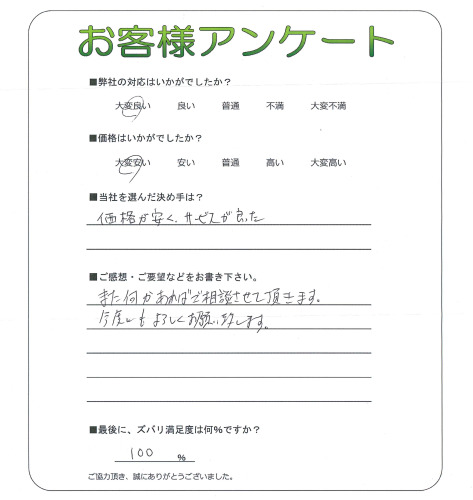 お客様アンケート
■弊社の対応はいかがでしたか？
大変良い 良い 普通 不満 大変不満
■価格はいかがでしたか？
大変安い 安い 普通 高い 大変高い
■当社を選んだ決め手は？
価格が安く、サービスが良かった
■ご感想・ご要望などをお書き下さい。
また何かあればご相談させて頂きます。
今後ともよろしくお願い致します。
■最後に、ズバリ満足度は何%ですか？
100 %
ご協力頂き、誠にありがとうございました。